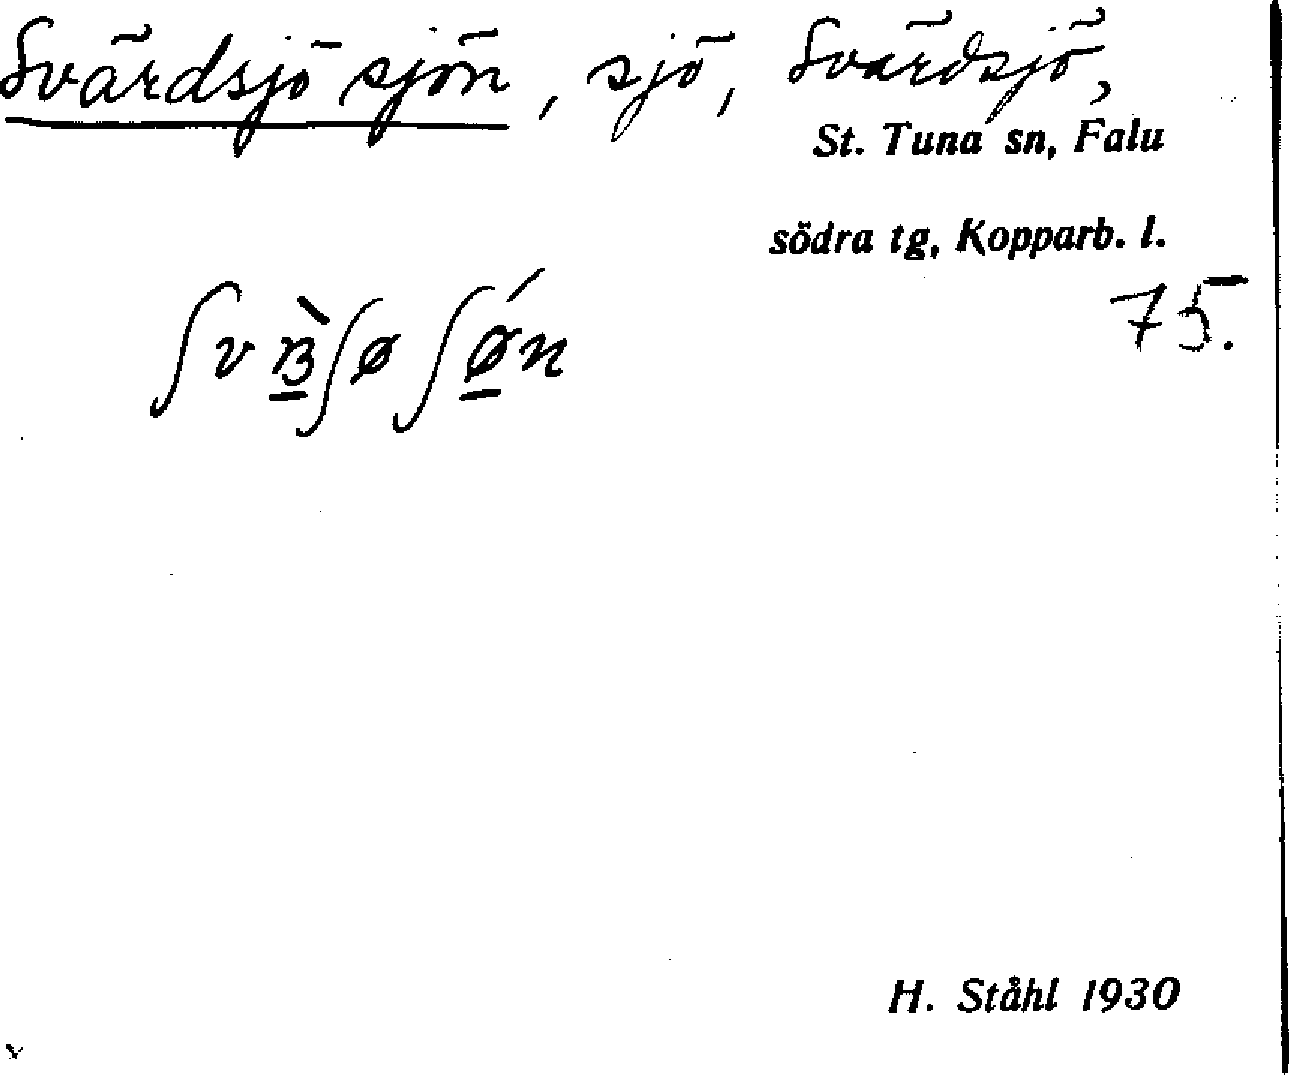 Svärdsjösjön, sjö, Svärdsjö,
St. Tuna sn, Falu
södra tg, Kopparb. l.
75.
H. Ståhl 1930